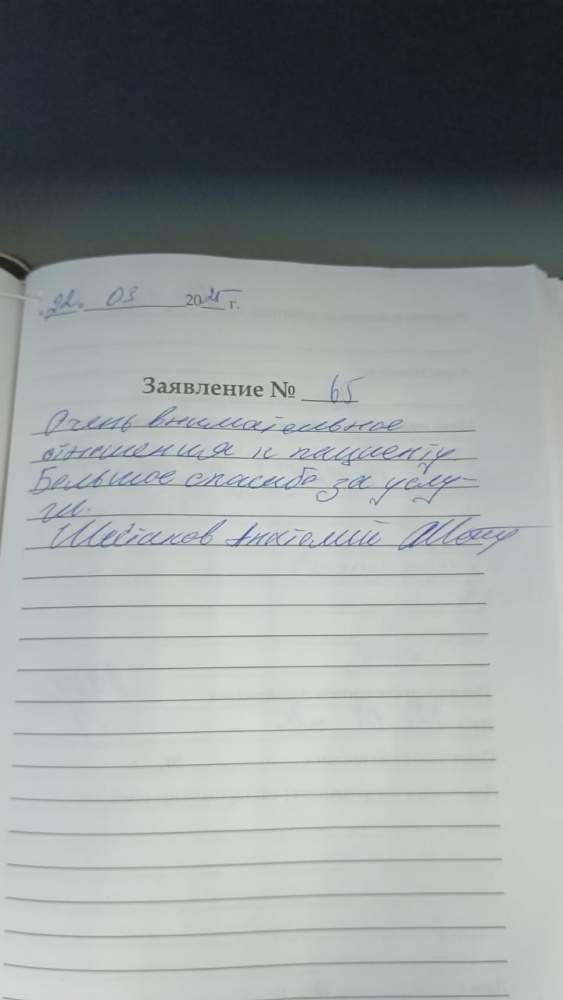 "22" 03 2025 г.
Заявление № 65
Очень внимательное
отношения к пациенту
Большое спасибо за услу-
ги.
Шестаков Анатолий